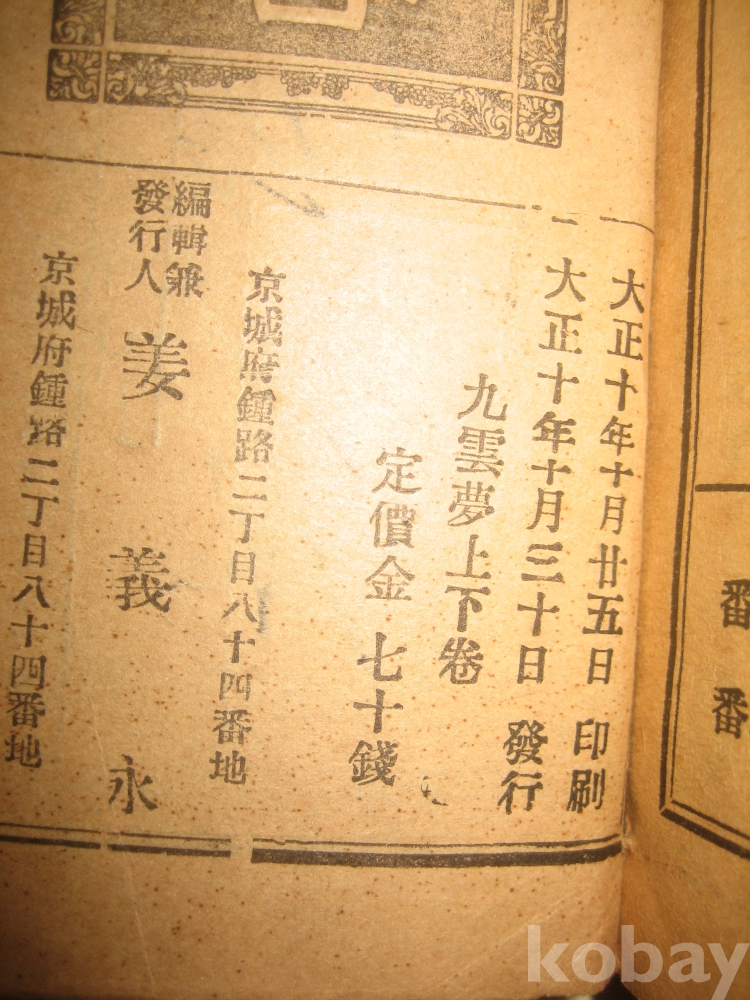 大正十年十月廿五日 印刷
大正十年十月三十日 發行
九雲夢上下卷
定價金 七十錢
京城府鍾路二丁目八十四番地
編輯兼
發行人 姜義永
京城府鍾路二丁目八十四番地
番
番
kobay